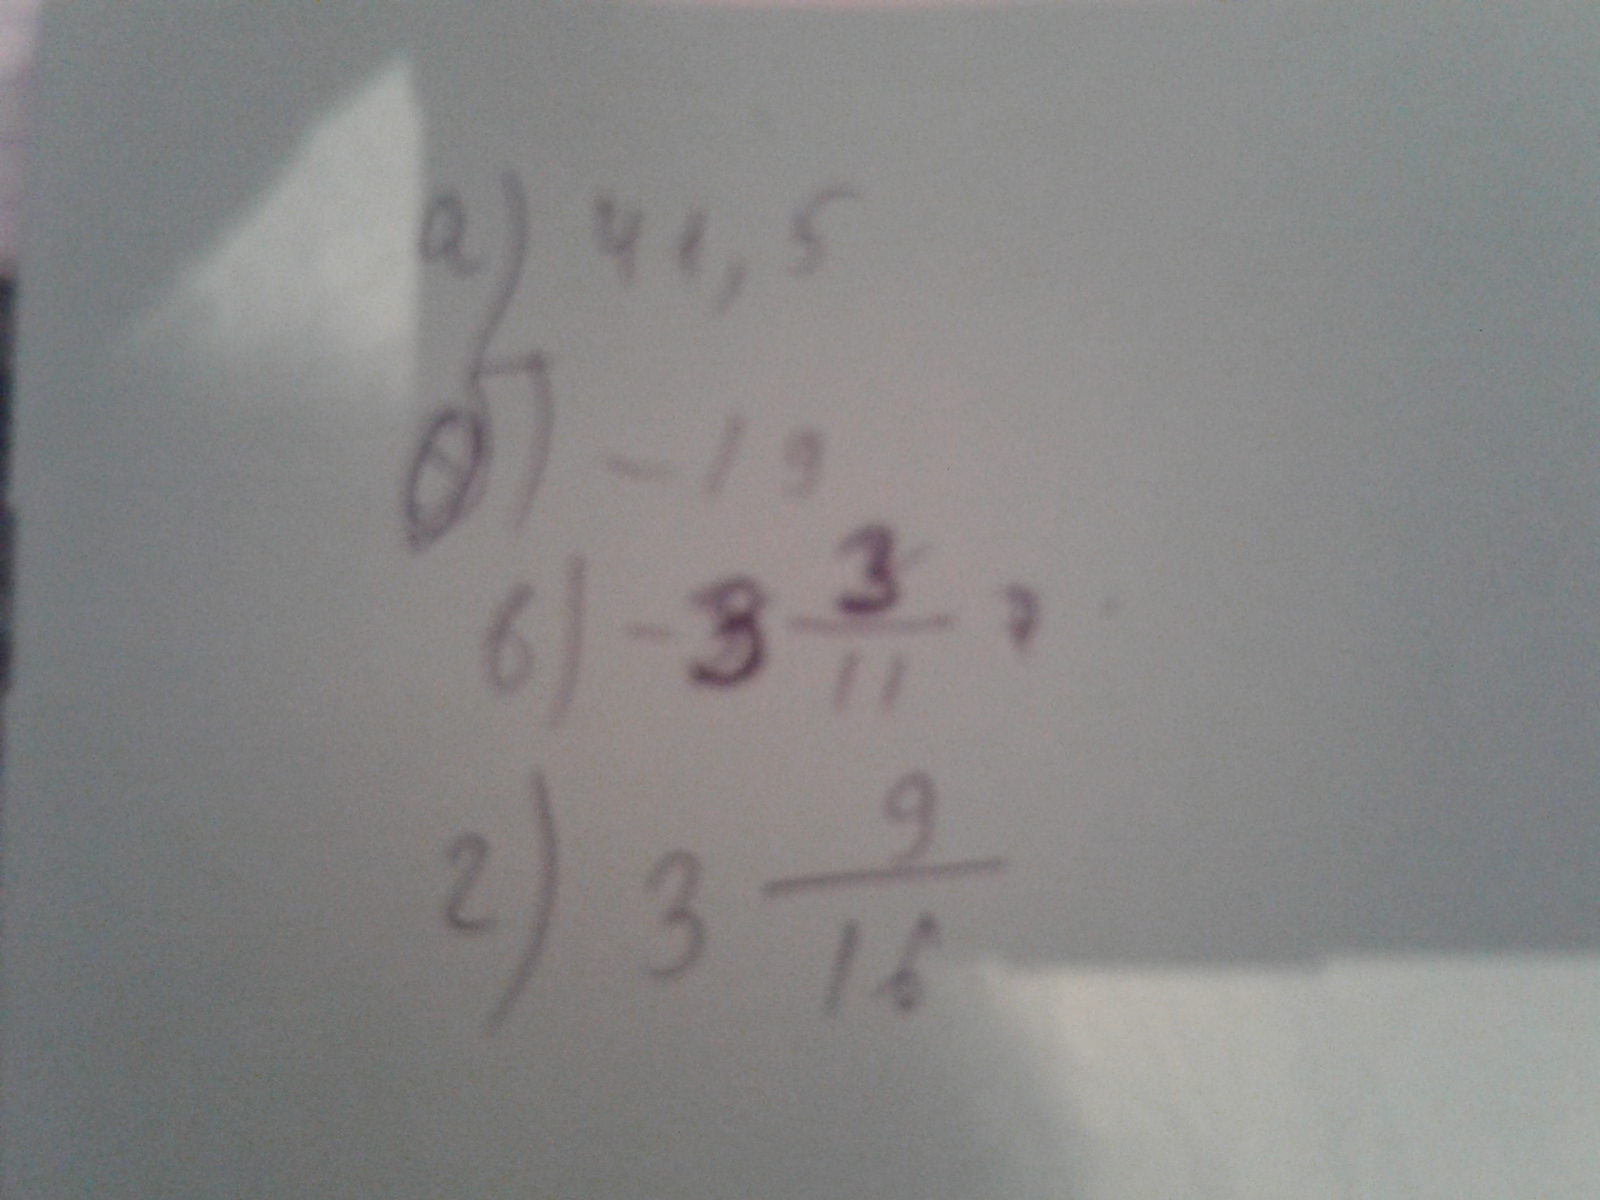 а) 41,5
б) -19
в) -3 3/11
г) 3 9/16